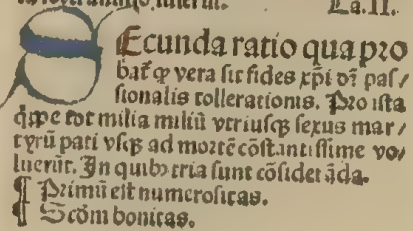 La.II.
Secunda ratio qua pro
bat̄ ꝙ vera sit fides xp̄i dr̄ pas/
sionalis tollerationis. Pro ista
q̄ppe tot milia miliū vtriusqꝫ sexus mar/
tyrū pati vsqꝫ ad mortē cōstantissime vo/
luerūt. In quibꝰ tria sunt cōsiderāda.
¶ Primū est numerositas.
¶ Scd̄m bonitas.